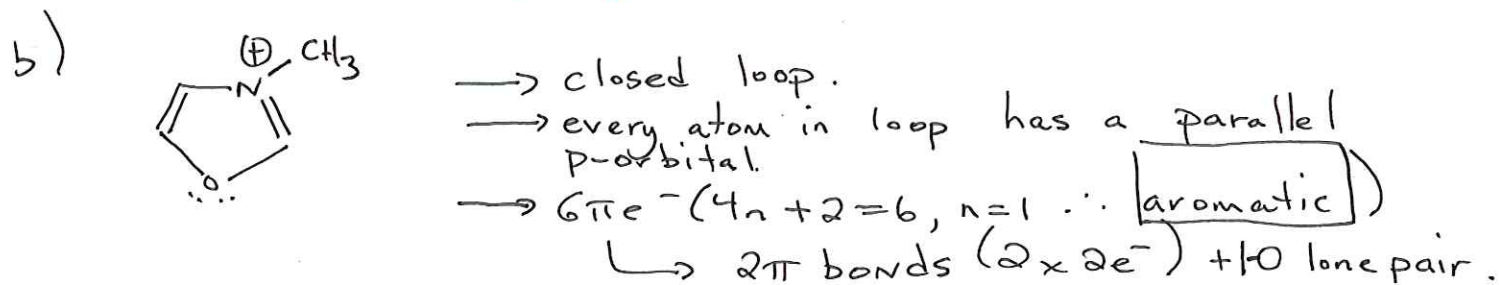 b)
⊕ CH3
N
O
→ closed loop.
→ every atom in loop has a parallel
p-orbital.
→ 6πe⁻ (4n+2=6, n=1 ∴ aromatic)
↳ 2π bonds (2x2e⁻) + 1 O lone pair.